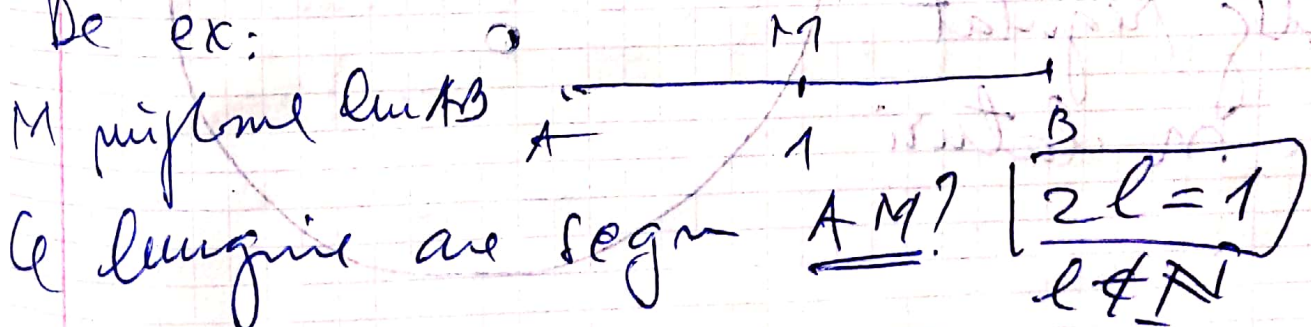 De ex:
M
M mijlocul lui AB
A 1 B
Ce lungime are segm AM? 2l = 1
l ∉ N